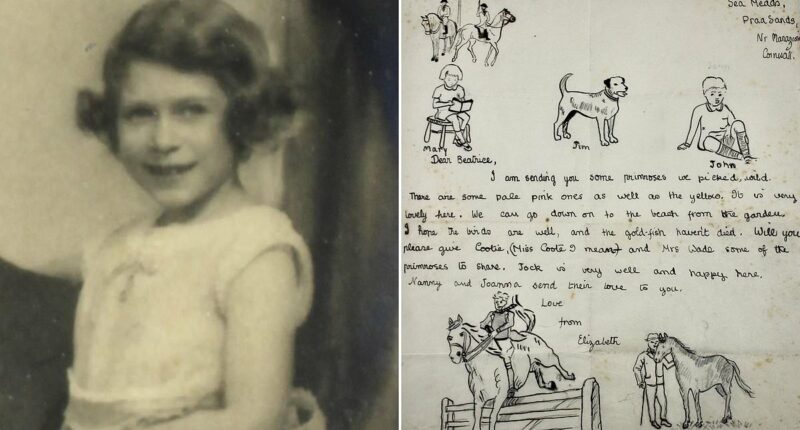 Sea Meads,
Praa Sands,
Nr Marazion
Cornwall.
Mary
Jim
John
Dear Beatrice,
I am sending you some primroses we picked, wild.
There are some pale pink ones as well as the yellow. It is very
lovely here. We can go down on to the beach from the garden.
I hope the birds are well, and the gold-fish haven't died. Will you
please give Cootie, (Miss Coote I mean) and Mrs Wade some of the
primroses to share. Jock is very well and happy here.
Nanny and Joanna send their love to you.
Love
from
Elizabeth